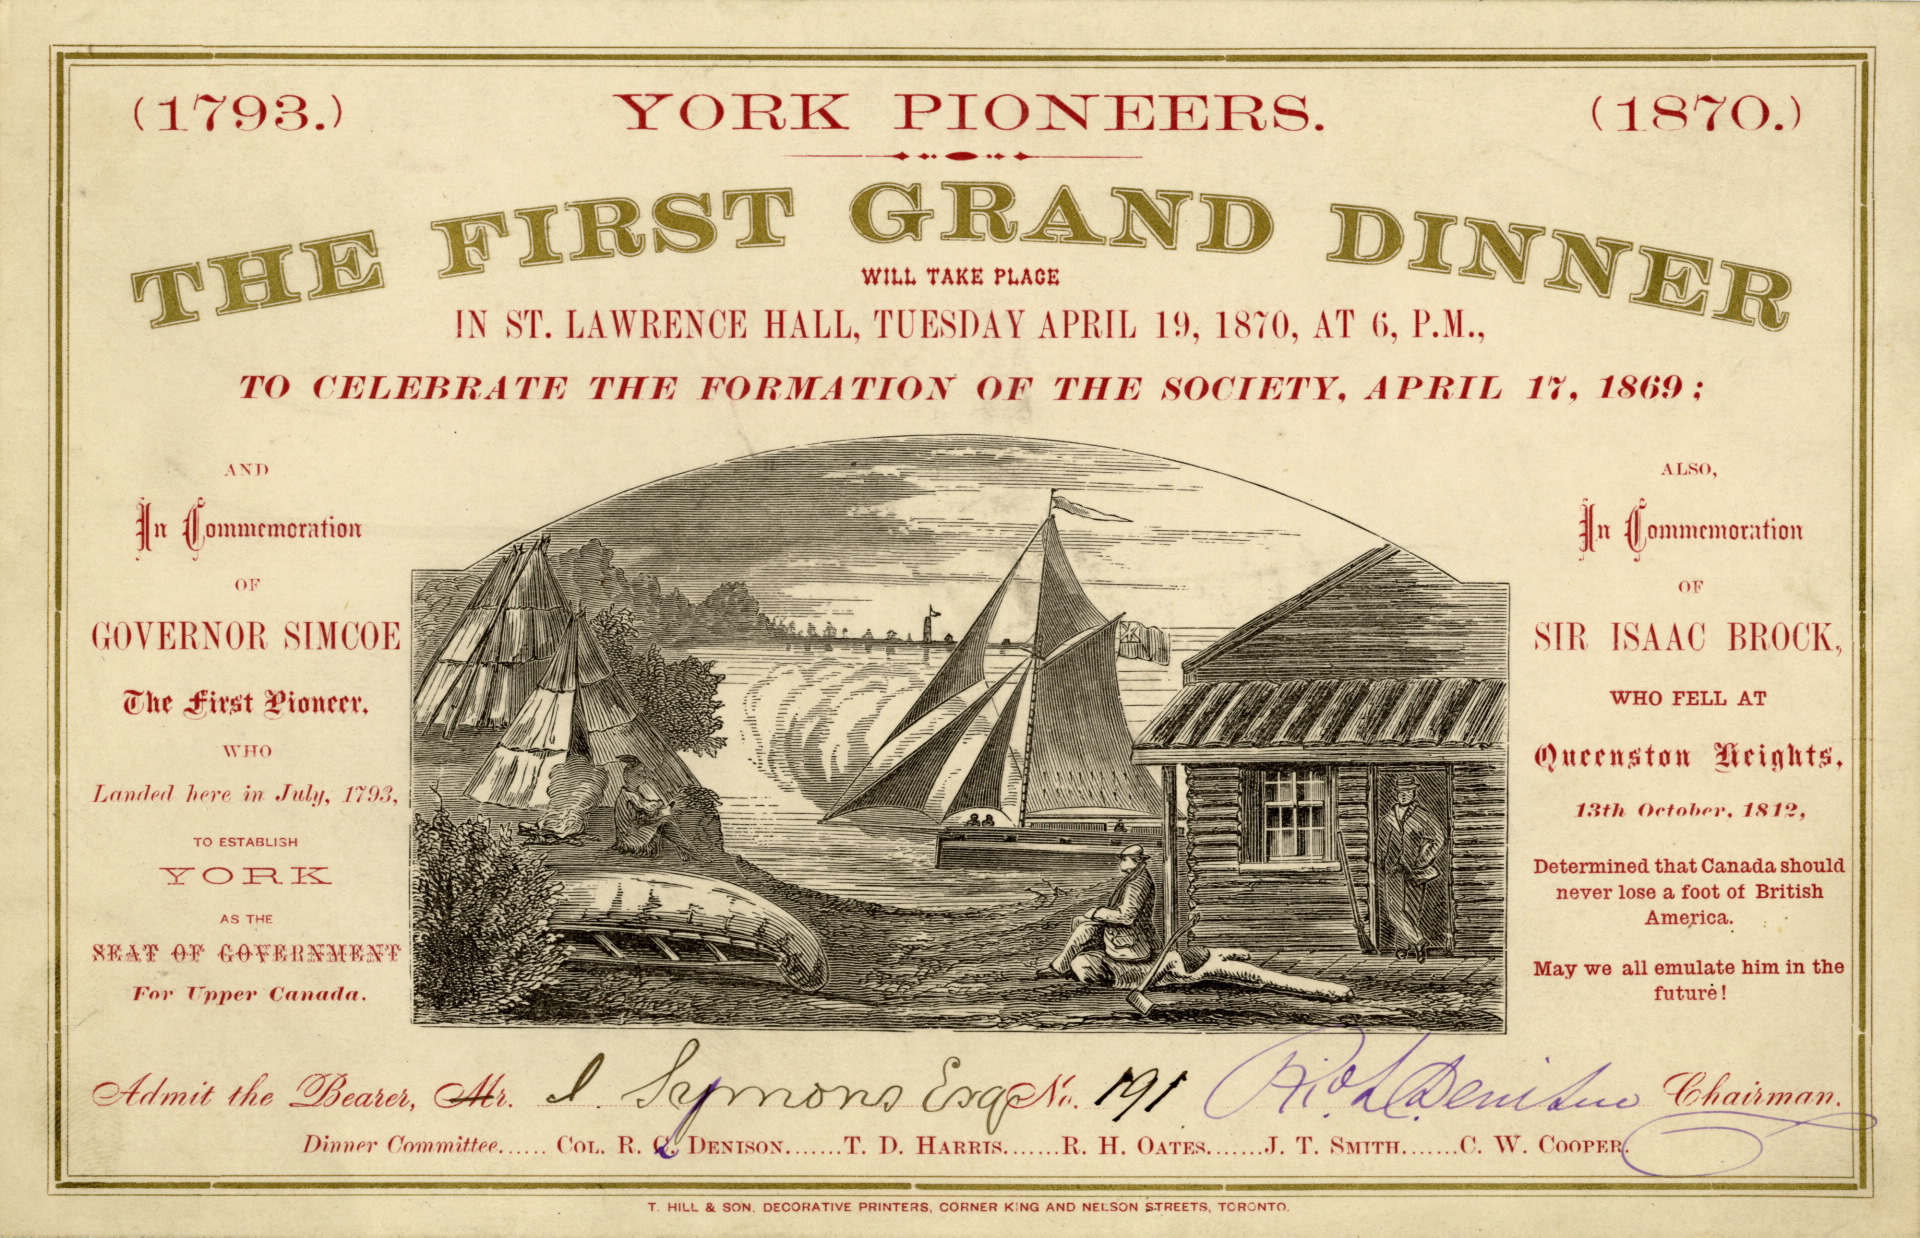 (1793.) YORK PIONEERS. (1870.)
THE FIRST GRAND DINNER
WILL TAKE PLACE
IN ST. LAWRENCE HALL, TUESDAY APRIL 19, 1870, AT 6, P.M.,
TO CELEBRATE THE FORMATION OF THE SOCIETY, APRIL 17, 1869;
AND
In Commemoration
OF
GOVERNOR SIMCOE
The First Pioneer,
WHO
Landed here in July, 1793,
TO ESTABLISH
YORK
AS THE
SEAT OF GOVERNMENT
For Upper Canada.
ALSO,
In Commemoration
OF
SIR ISAAC BROCK,
WHO FELL AT
Queenston Heights,
13th October, 1812,
Determined that Canada should
never lose a foot of British
America.
May we all emulate him in the
future!
Admit the Bearer, Mr. Symons Esq No. 191 Denison Chairman.
Dinner Committee...... COL. R. L. DENISON.......T. D. HARRIS.......R. H. OATES.......J. T. SMITH.......C. W. COOPER.
T. HILL & SON, DECORATIVE PRINTERS, CORNER KING AND NELSON STREETS, TORONTO.